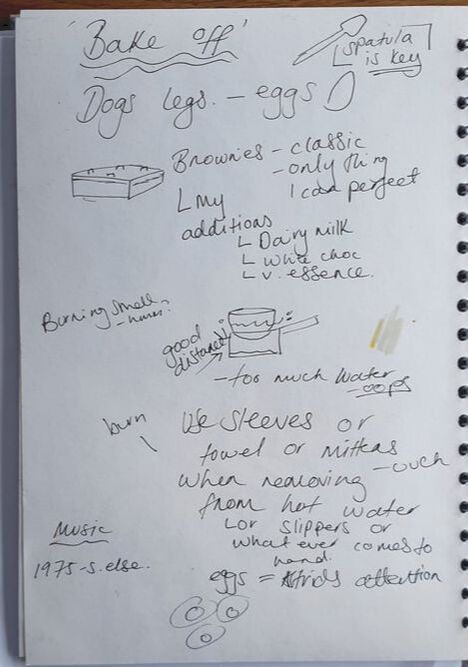 'Bake off'
spatula
is key
Dogs legs. - eggs
Brownies - classic
- only thing
I can perfect
My
additions
Dairy milk
white choc
v. essence.
Burning smell
good
distance
- too much water
oops
burn
Use sleeves or
towel or mittens
when removing - ouch
from hot water
or slippers or
what ever comes to
hand.
Music
1975 - s.else.
eggs = Astrids attention